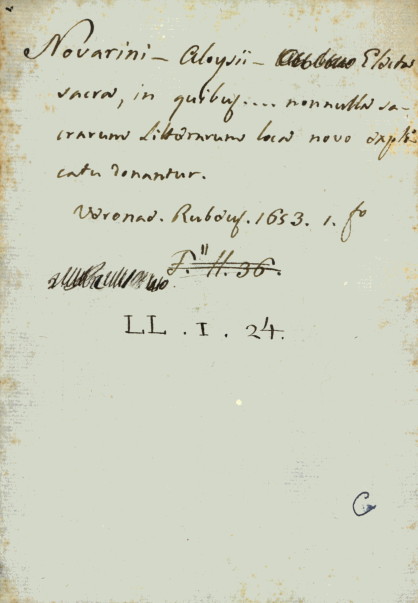 Novarini - Aloysii - Electa
sacra, in quibus .... nonnulla sa-
crarum Litterarum loca novo expli-
catu donantur.
Veronae. Rubeus. 1653. 1. fo
F. II. 36.
LL . I . 24.
G